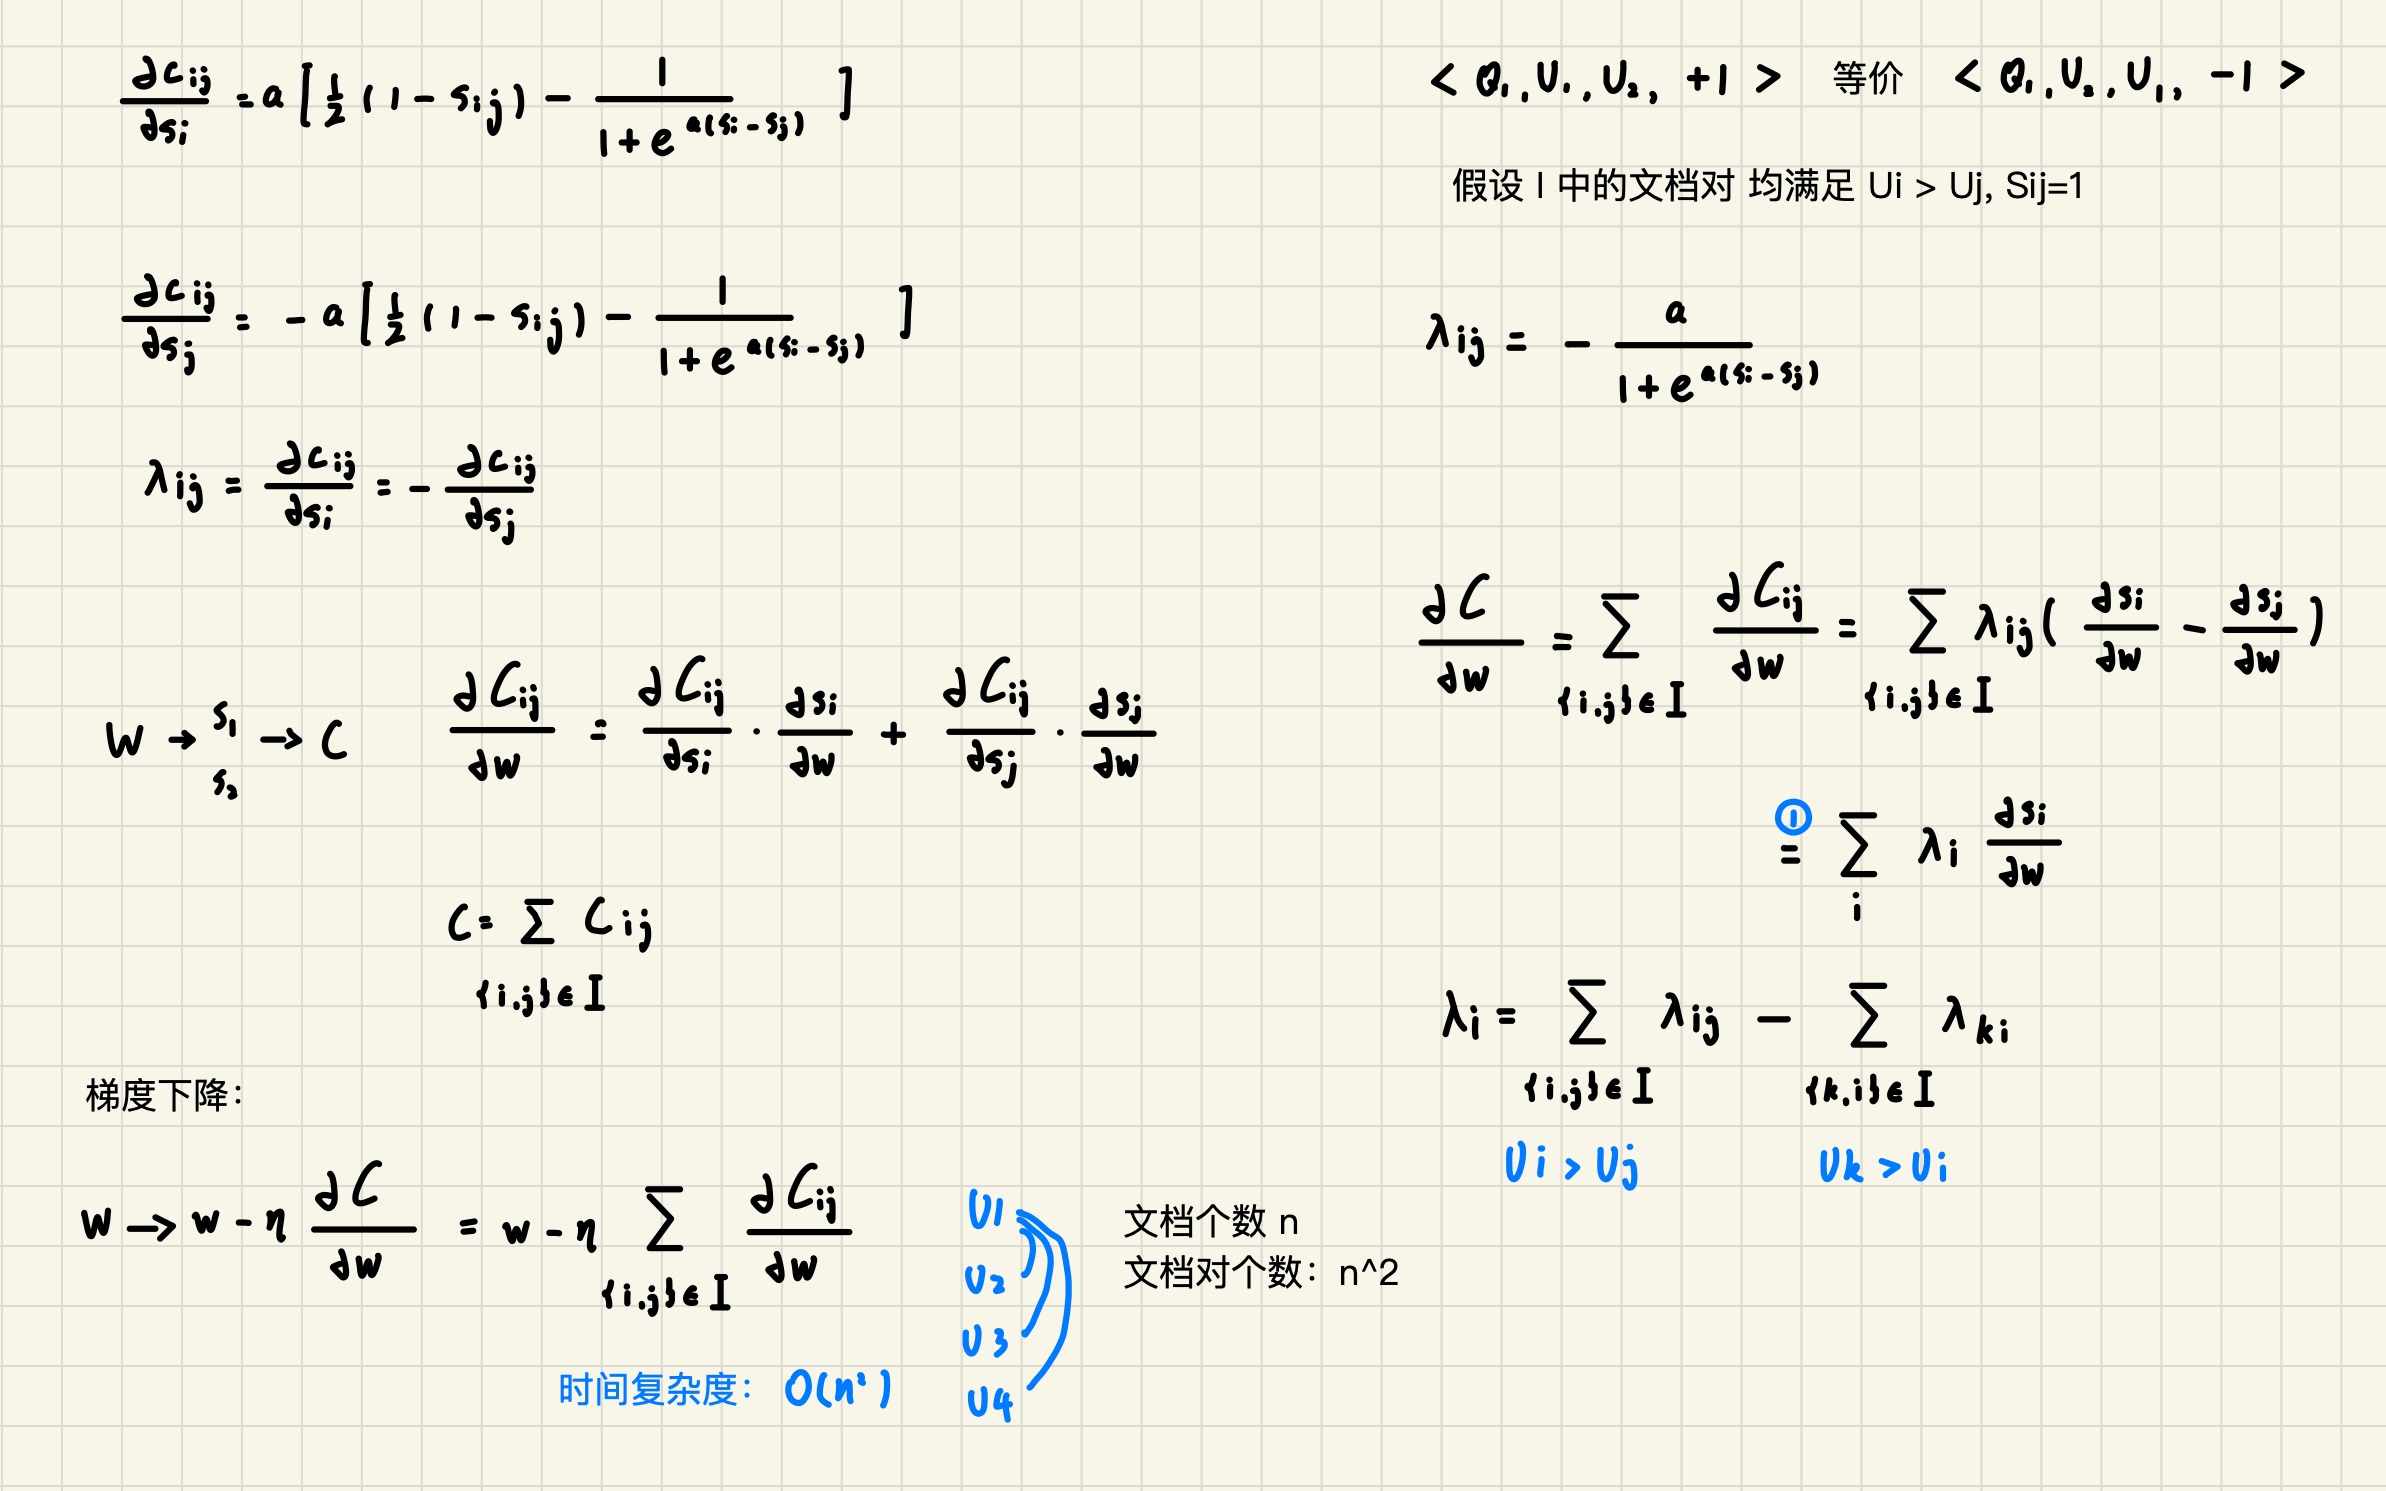 ∂Cij/∂si = a[½(1 - Sij) - 1/(1 + e^a(si - sj))]
∂Cij/∂sj = -a[½(1 - Sij) - 1/(1 + e^a(si - sj))]
λij = ∂Cij/∂si = - ∂Cij/∂sj
W → s1 s2 → C    ∂Cij/∂w = ∂Cij/∂si · ∂si/∂w + ∂Cij/∂sj · ∂sj/∂w
C = Σ Cij
{i,j}∈I
梯度下降：
w → w - η ∂C/∂w = w - η Σ ∂Cij/∂w
{i,j}∈I
时间复杂度： O(n²)
U1
U2
U3
U4
文档个数 n
文档对个数：n^2
< Q1, U1, U2, +1 > 等价 < Q1, U2, U1, -1 >
假设 I 中的文档对 均满足 Ui > Uj, Sij=1
λij = - a/(1 + e^a(si - sj))
∂C/∂w = Σ ∂Cij/∂w = Σ λij( ∂si/∂w - ∂sj/∂w )
{i,j}∈I {i,j}∈I
①
= Σ λi ∂si/∂w
i
λi = Σ λij - Σ λki
{i,j}∈I {k,i}∈I
Ui > Uj Uk > Ui